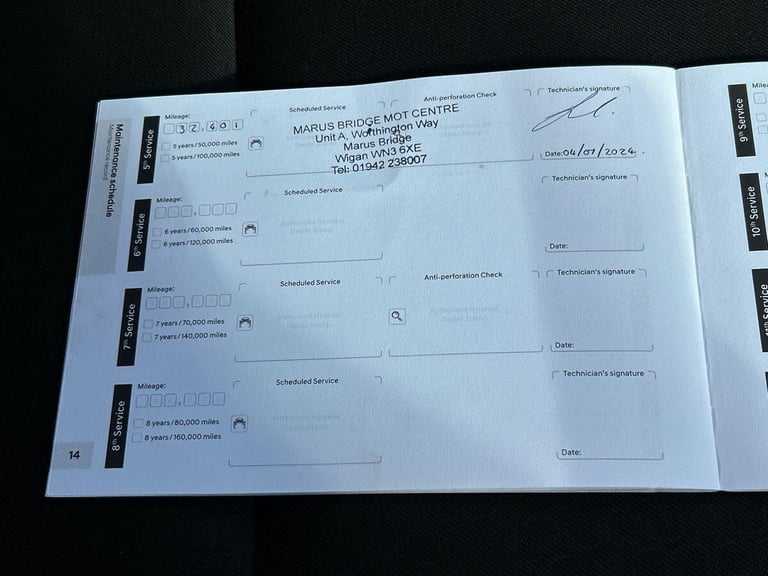 Maintenance schedule
Maintenance record
5th Service
Mileage:
32,401
5 years/50,000 miles
5 years/100,000 miles
Scheduled Service
Anti-perforation Check
MARUS BRIDGE MOT CENTRE
Unit A, Worthington Way
Marus Bridge
Wigan WN3 6XE
Tel: 01942 238007
Technician's signature
Date: 04/01/2024.
6th Service
Mileage:
6 years/60,000 miles
6 years/120,000 miles
Scheduled Service
Authorised Hyundai
Dealer Stamp
Technician's signature
Date:
7th Service
Mileage:
7 years/70,000 miles
7 years/140,000 miles
Scheduled Service
Authorised Hyundai
Dealer Stamp
Anti-perforation Check
Authorised Hyundai
Dealer Stamp
Technician's signature
Date:
8th Service
Mileage:
8 years/80,000 miles
8 years/160,000 miles
Scheduled Service
Authorised Hyundai
Dealer Stamp
Technician's signature
Date:
14
9th Service
10th Service